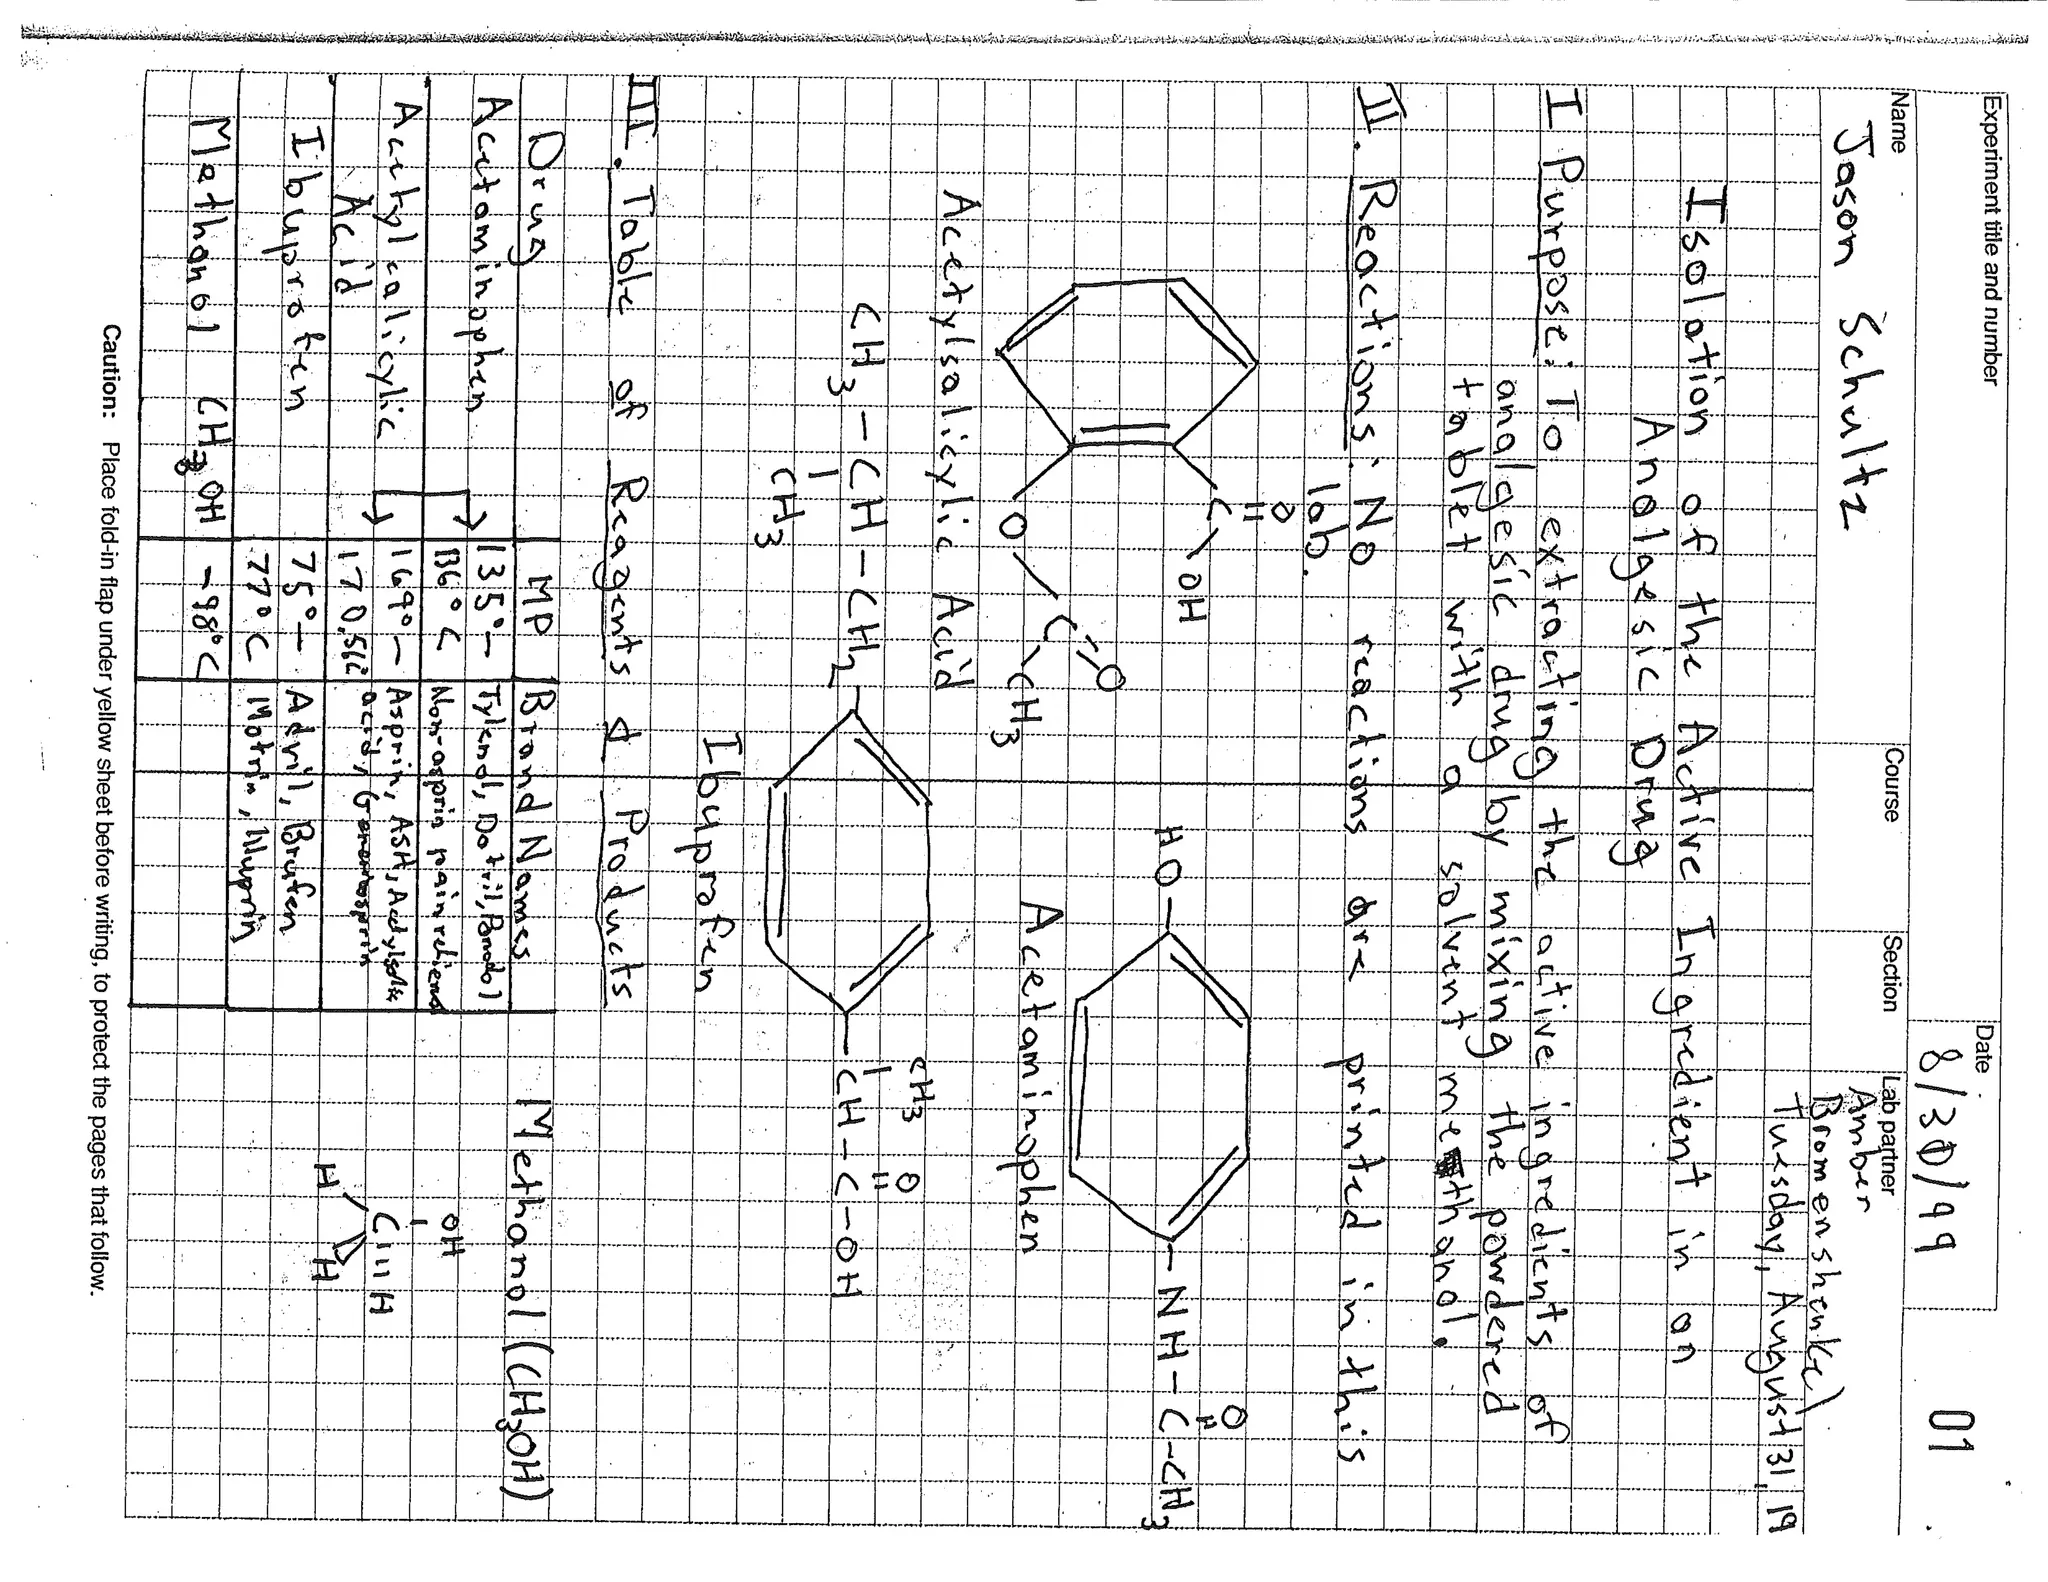 Experiment title and number
Date
8/30/99
01
Name
Jason Schultz
Course
Section
Lab partner
Amber
Bromenshenkel
Tuesday, August 31, 19
Isolation of the Active Ingredient in an
Analgesic Drug
I Purpose: To extracting the active ingredients of
analgesic drug by mixing the powdered
tablet with a solvent methanol.
II. Reactions: No reactions are printed in this
lab.
O
C
OH
O
C
O
CH3
Acetylsalicylic Acid
HO
NH-C-CH3
O
Acetaminophen
CH3-CH-CH2
CH3
CH3
O
CH-C-OH
Ibuprofen
III. Table of Reagents & Products
Drug MP Brand Names
Acetaminophen 135°- Tylenol, Datril, Panadol
136°C Non-asprin pain relievers
Acetylcalicylic 169°- Asprin, ASA,
Acid 170.5°C acid,
Ibuprofen 75°- Advil, Brufen
77°C Motrin, Nuprin
Methanol CH3OH -98°C
Methanol (CH3OH)
OH
C H
H H
Caution: Place fold-in flap under yellow sheet before writing, to protect the pages that follow.